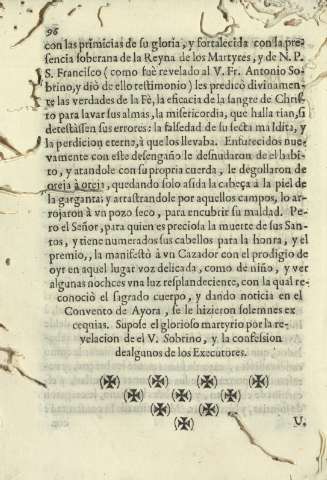 96
con las primicias de su gloria, y fortalecida con la pre-
sencia soberana de la Reyna de los Martyres, y de N. P.
S. Francisco (como fuè revelado al V. Fr. Antonio So-
brino, y diò de ello testimonio) les predicò divinamen-
te las verdades de la Fè, la eficacia de la sangre de Chris-
to para lavar sus almas, la misericordia, que hallarian, si
detestassen sus errores: la falsedad de su secta maldita, y
la perdicion eterna, à que los llevaba. Enfurecidos nue-
vamente con este desengaño le desnudaron de el habi-
to, y atandole con su propria cuerda, le degollaron de
oreja à oreja, quedando solo asida la cabeça à la piel de
la garganta; y arrastrandole por aquellos campos, lo ar-
rojaron à vn pozo seco, para encubrir su maldad. Pe-
ro el Señor, para quien es preciosa la muerte de sus San-
tos, y tiene numerados sus cabellos para la honra, y el
premio, la manifestò à vn Cazador con el prodigio de
oyr en aquel lugar voz delicada, como de niño, y ver
algunas noches vna luz resplandeciente, con la qual re-
conociò el sagrado cuerpo, y dando noticia en el
Convento de Ayora, se le hizieron solemnes ex
cequias. Supose el glorioso martyrio por la re-
velacion de el V. Sobrino, y la confession
de algunos de los Executores.
V.